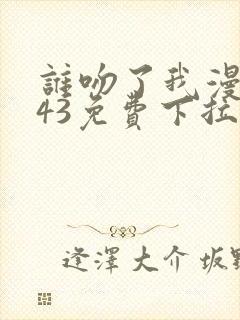 誰吻了我漫
43免費下拉
逢澤大介 坂